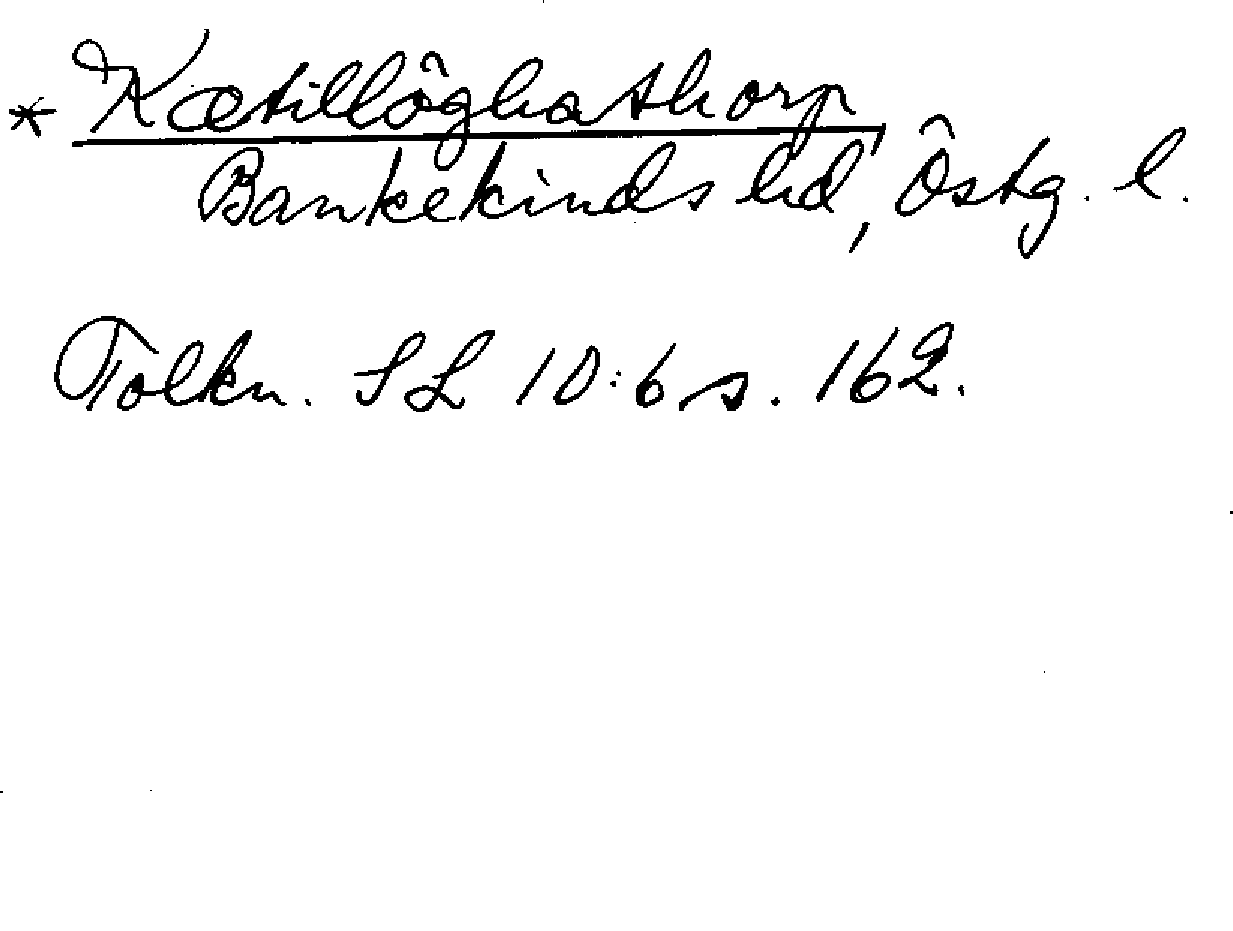 * Kætillôghathorp,
Bankekinds hd, Östg. l.
Tolkn. SL 10:6, s. 162.